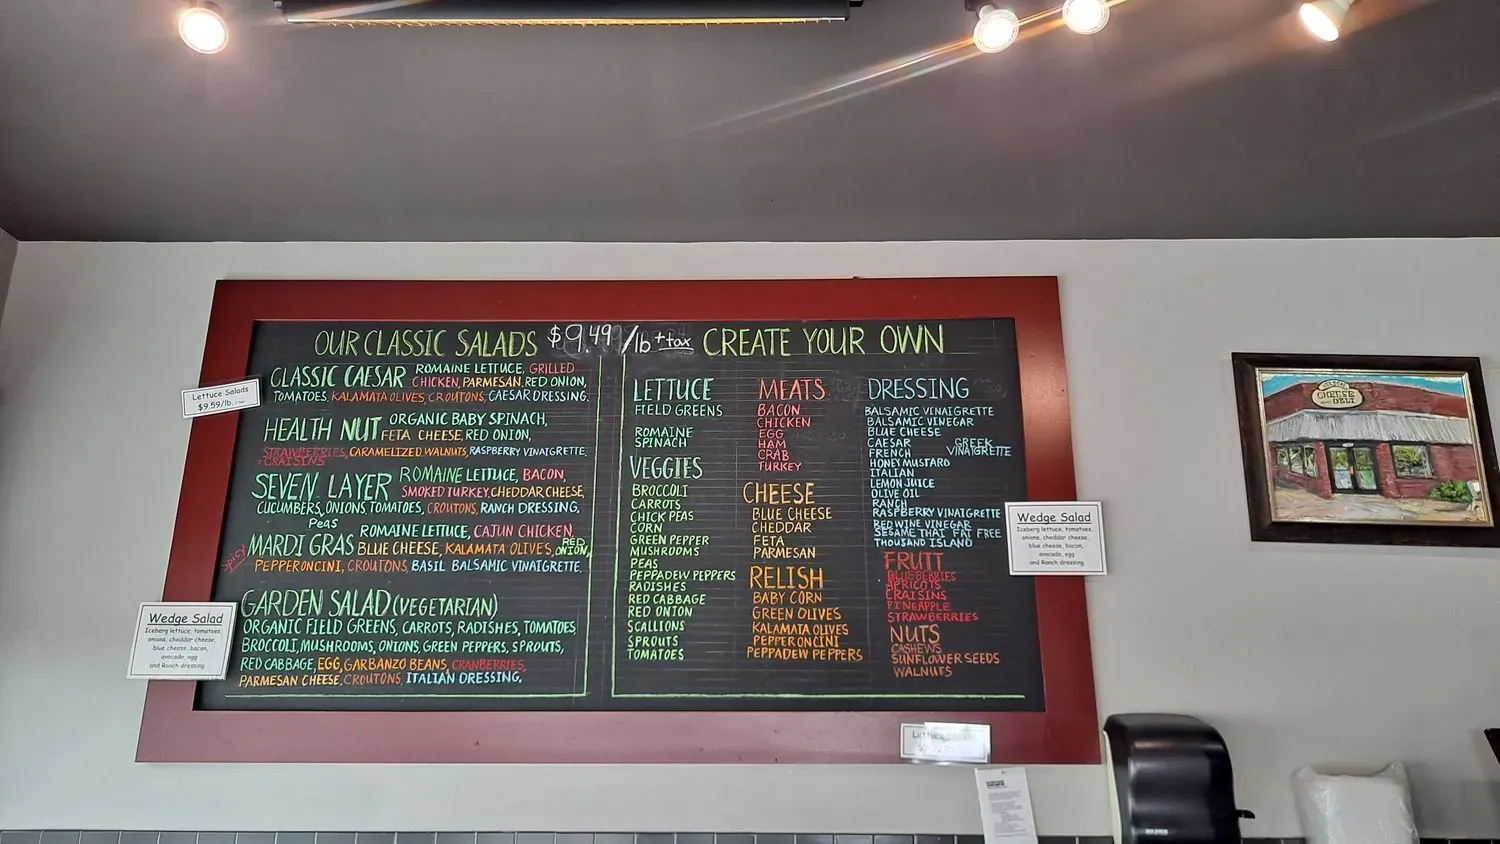 OUR CLASSIC SALADS $9.49/lb +tax CREATE YOUR OWN
Lettuce Salads
$9.59/lb.
CLASSIC CAESAR ROMAINE LETTUCE, GRILLED
CHICKEN, PARMESAN, RED ONION,
TOMATOES, KALAMATA OLIVES, CROUTONS, CAESAR DRESSING.
HEALTH NUT ORGANIC BABY SPINACH,
FETA CHEESE, RED ONION,
STRAWBERRIES, CARAMELIZED WALNUTS, RASPBERRY VINAIGRETTE.
CRAISINS
SEVEN LAYER ROMAINE LETTUCE, BACON,
SMOKED TURKEY, CHEDDAR CHEESE,
CUCUMBERS, ONIONS, TOMATOES, CROUTONS, RANCH DRESSING.
Peas
SPICY
MARDI GRAS ROMAINE LETTUCE, CAJUN CHICKEN,
BLUE CHEESE, KALAMATA OLIVES, RED ONION,
PEPPERONCINI, CROUTONS, BASIL BALSAMIC VINAIGRETTE.
GARDEN SALAD (VEGETARIAN)
ORGANIC FIELD GREENS, CARROTS, RADISHES, TOMATOES,
BROCCOLI, MUSHROOMS, ONIONS, GREEN PEPPERS, SPROUTS,
RED CABBAGE, EGG, GARBANZO BEANS, CRANBERRIES,
PARMESAN CHEESE, CROUTONS, ITALIAN DRESSING.
Wedge Salad
Iceberg lettuce, tomatoes,
onions, cheddar cheese,
blue cheese, bacon,
avocado, egg
and Ranch dressing
LETTUCE
FIELD GREENS
ROMAINE
SPINACH
VEGGIES
BROCCOLI
CARROTS
CHICK PEAS
CORN
GREEN PEPPER
MUSHROOMS
PEAS
PEPPADEW PEPPERS
RADISHES
RED CABBAGE
RED ONION
SCALLIONS
SPROUTS
TOMATOES
MEATS
BACON
CHICKEN
EGG
HAM
CRAB
TURKEY
CHEESE
BLUE CHEESE
CHEDDAR
FETA
PARMESAN
RELISH
BABY CORN
GREEN OLIVES
KALAMATA OLIVES
PEPPERONCINI
PEPPADEW PEPPERS
DRESSING
BALSAMIC VINAIGRETTE
BALSAMIC VINEGAR
BLUE CHEESE
CAESAR
FRENCH
GREEK
VINAIGRETTE
HONEY MUSTARD
ITALIAN
LEMON JUICE
OLIVE OIL
RANCH
RASPBERRY VINAIGRETTE
RED WINE VINEGAR
SESAME THAI FAT FREE
THOUSAND ISLAND
FRUIT
BLUEBERRIES
APRICOTS
CRAISINS
PINEAPPLE
STRAWBERRIES
NUTS
CASHEWS
SUNFLOWER SEEDS
WALNUTS
Wedge Salad
Iceberg lettuce, tomatoes,
onions, cheddar cheese,
blue cheese, bacon,
avocado, egg
and Ranch dressing
CHEESE
DELI